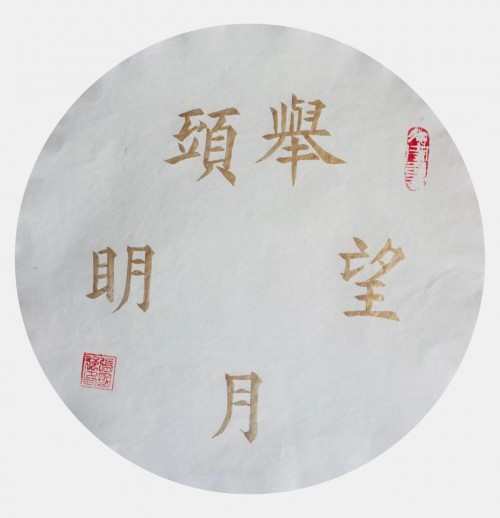 舉頭
望明
月